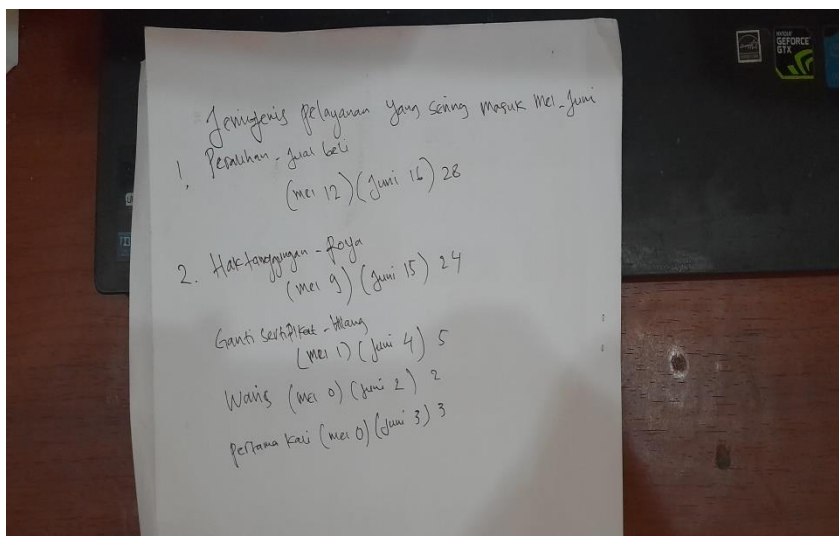 Jenisjenis pelayanan yang sering masuk Mei-Juni
1. Peralihan - Jual beli
(mei 12) (Juni 16) 28
2. Hak tanggungan - Roya
(mei 9) (Juni 15) 24
Ganti Sertifikat - Hilang
(mei 1) (Juni 4) 5
Waris (mei 0) (Juni 2) 2
Pertama kali (mei 0) (Juni 3) 3
GEFORCE
GTX